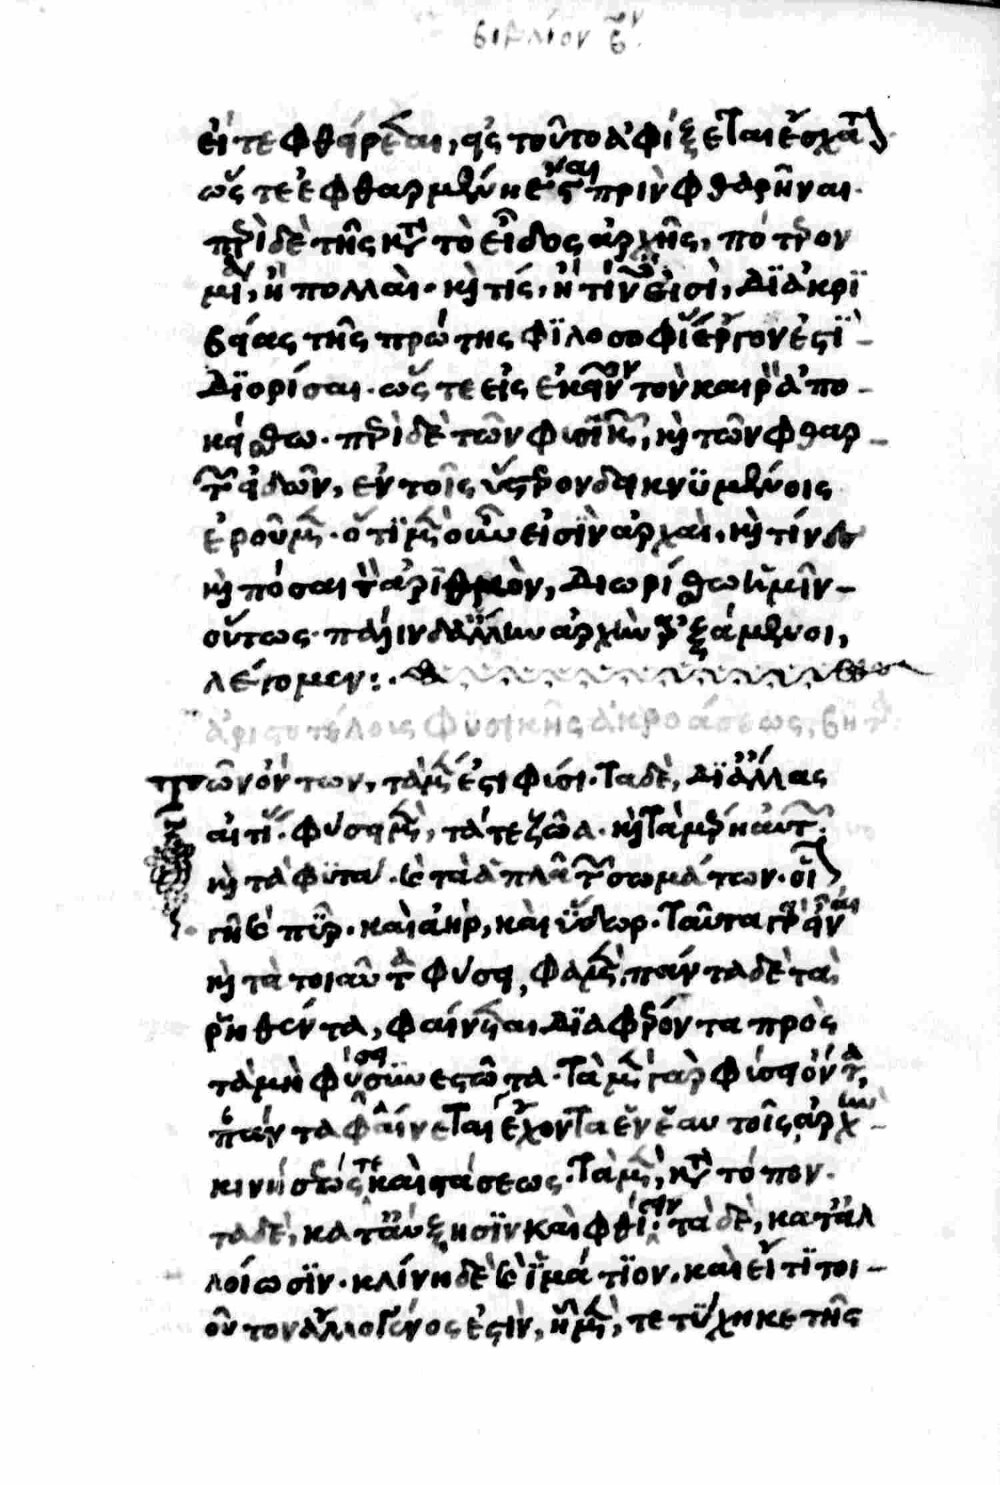 βιβλίον βον
εἴτε φθείρεται, εἰς τοῦτο ἀφίξεται ἔσχατον
ὥστε ἐφθαρμένη ἔσται πρὶν φθαρῆναι.
περὶ δὲ τῆς κατὰ τὸ εἶδος ἀρχῆς, πότερον
μία, ἢ πολλαὶ. καὶ τίς, ἢ τίνες εἰσὶ, δϊακρϊ
βείας τῆς πρώτης φϊλοσοφίας ἔργον ἐστὶ
δϊορίσαι. ὥστε εἰς ἐκεῖνον τὸν καιρὸν ἀπο-
κείσθω. περὶ δὲ τῶν φυσικῶν, καὶ τῶν φθαρ-
τῶν εἰδῶν, ἐν τοῖς ὕστερον δεικνϋμένοις
ἐροῦμεν. ὅτι μὲν οὖν εἰσῒν ἀρχαὶ. καὶ τίνες
καὶ πόσαι τὸν ἀρϊθμὸν, διωρίσθω ἡμῖν-
οὕτως. πάλιν δ' ἄλλην ἀρχὴν ἀρξάμενοι,
λέγομεν:.
ἀριστοτέλους φϋσικῆς ἀκροάσεως, βητα:
Τῶν ὄντων, τὰ μέν ἐστι φύσει. τα δὲ, δϊ' ἄλλας
αἰτίας. φύσει μὲν, τά τε ζῶα. καὶ τὰ μέρη αὐτῶν.
καὶ τὰ φϋτα. καὶ τὰ ἁπλᾶ τῶν σωμάτων. οἷον
γῆ καὶ πῦρ. καὶ ἀὴρ, καὶ ὕδωρ. ταῦτα γὰρ εἶναι
καὶ τὰ τοιαῦτα φύσει, φαμὲν, πάντα δὲ τὰ
ῥηθέντα, φαίνεται δϊαφέροντα πρὸς
τὰ μὴ φύσει συνεστῶτα. τὰ μὲν γὰρ φύσει ὄντα,
πάντα φαίνεται ἔχοντα ἐν ἑαυτοῖς ἀρχὴν
κινήσεώς τε καὶ στάσεως. τὰ μὲν, κατὰ τόπον.
τὰ δὲ, κατ' αὔξησϊν καὶ φθίσιν. τὰ δὲ, κατ' ἀλ
λοίωσϊν. κλίνη δὲ καὶ ἱμάτϊον. καὶ εἴ τϊ τοι-
οῦτον ἄλλο γένος ἐστὶν, ᾗ μὲν, τετύχηκε τῆς